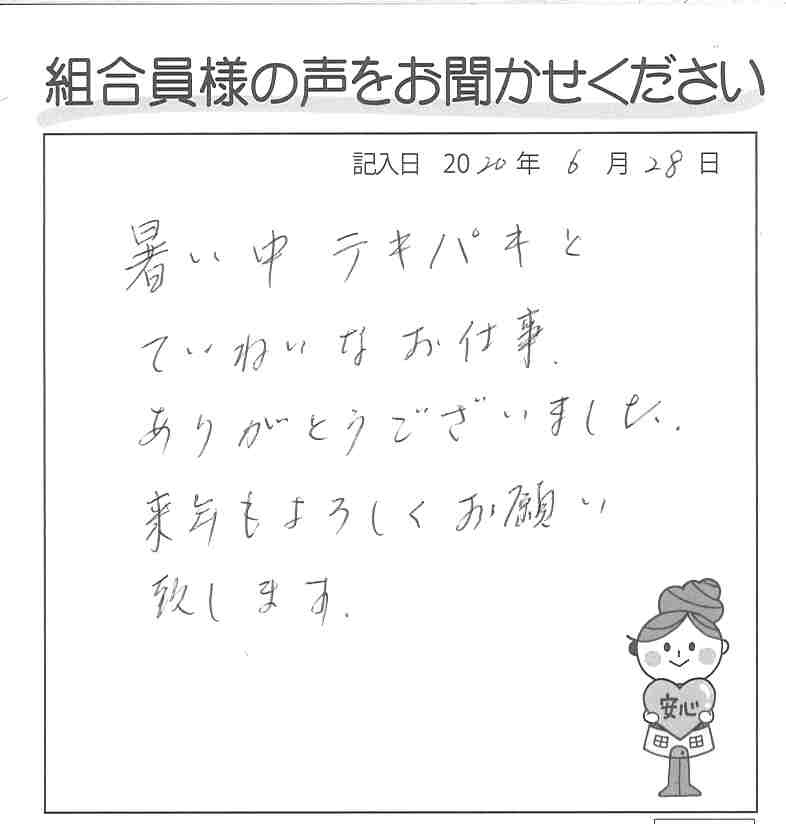 組合員様の声をお聞かせください
記入日 2020年 6月28日
暑い中 テキパキと
ていねいなお仕事、
ありがとうございました。
来年もよろしくお願い
致します。
安心